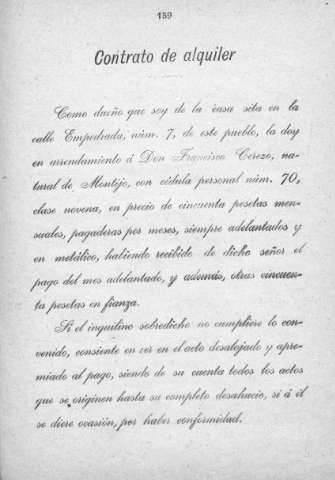 159
Contrato de alquiler
Como dueño que soy de la casa sita en la
calle Empedrada, núm. 7, de este pueblo, la doy
en arrendamiento á Don Francisco Cerezo, na-
tural de Montijo, con cédula personal núm. 70,
clase novena, en precio de cincuenta pesetas men-
suales, pagaderas por meses, siempre adelantados y
en metálico, habiendo recibido de dicho señor el
pago del mes adelantado, y además, otras cincuen-
ta pesetas en fianza.
Si el inquilino sobredicho no cumpliere lo con-
venido, consiente en ser en el acto desalojado y apre-
miado al pago, siendo de su cuenta todos los actos
que se originen hasta su completo desahucio, si á él
se diere ocasión, por haber conformidad.